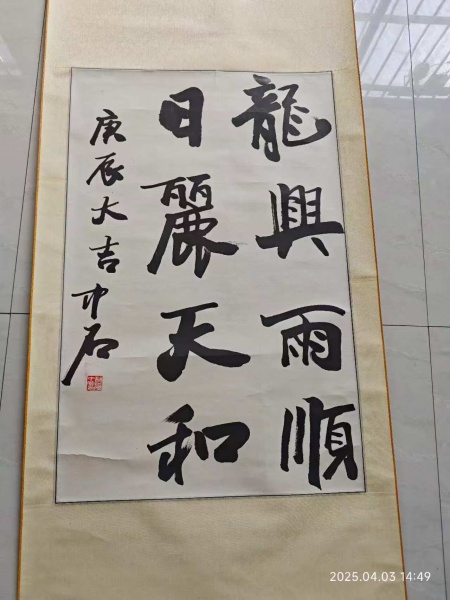 龍興雨順
日麗天和
庚辰大吉中石
2025.04.03 14:49